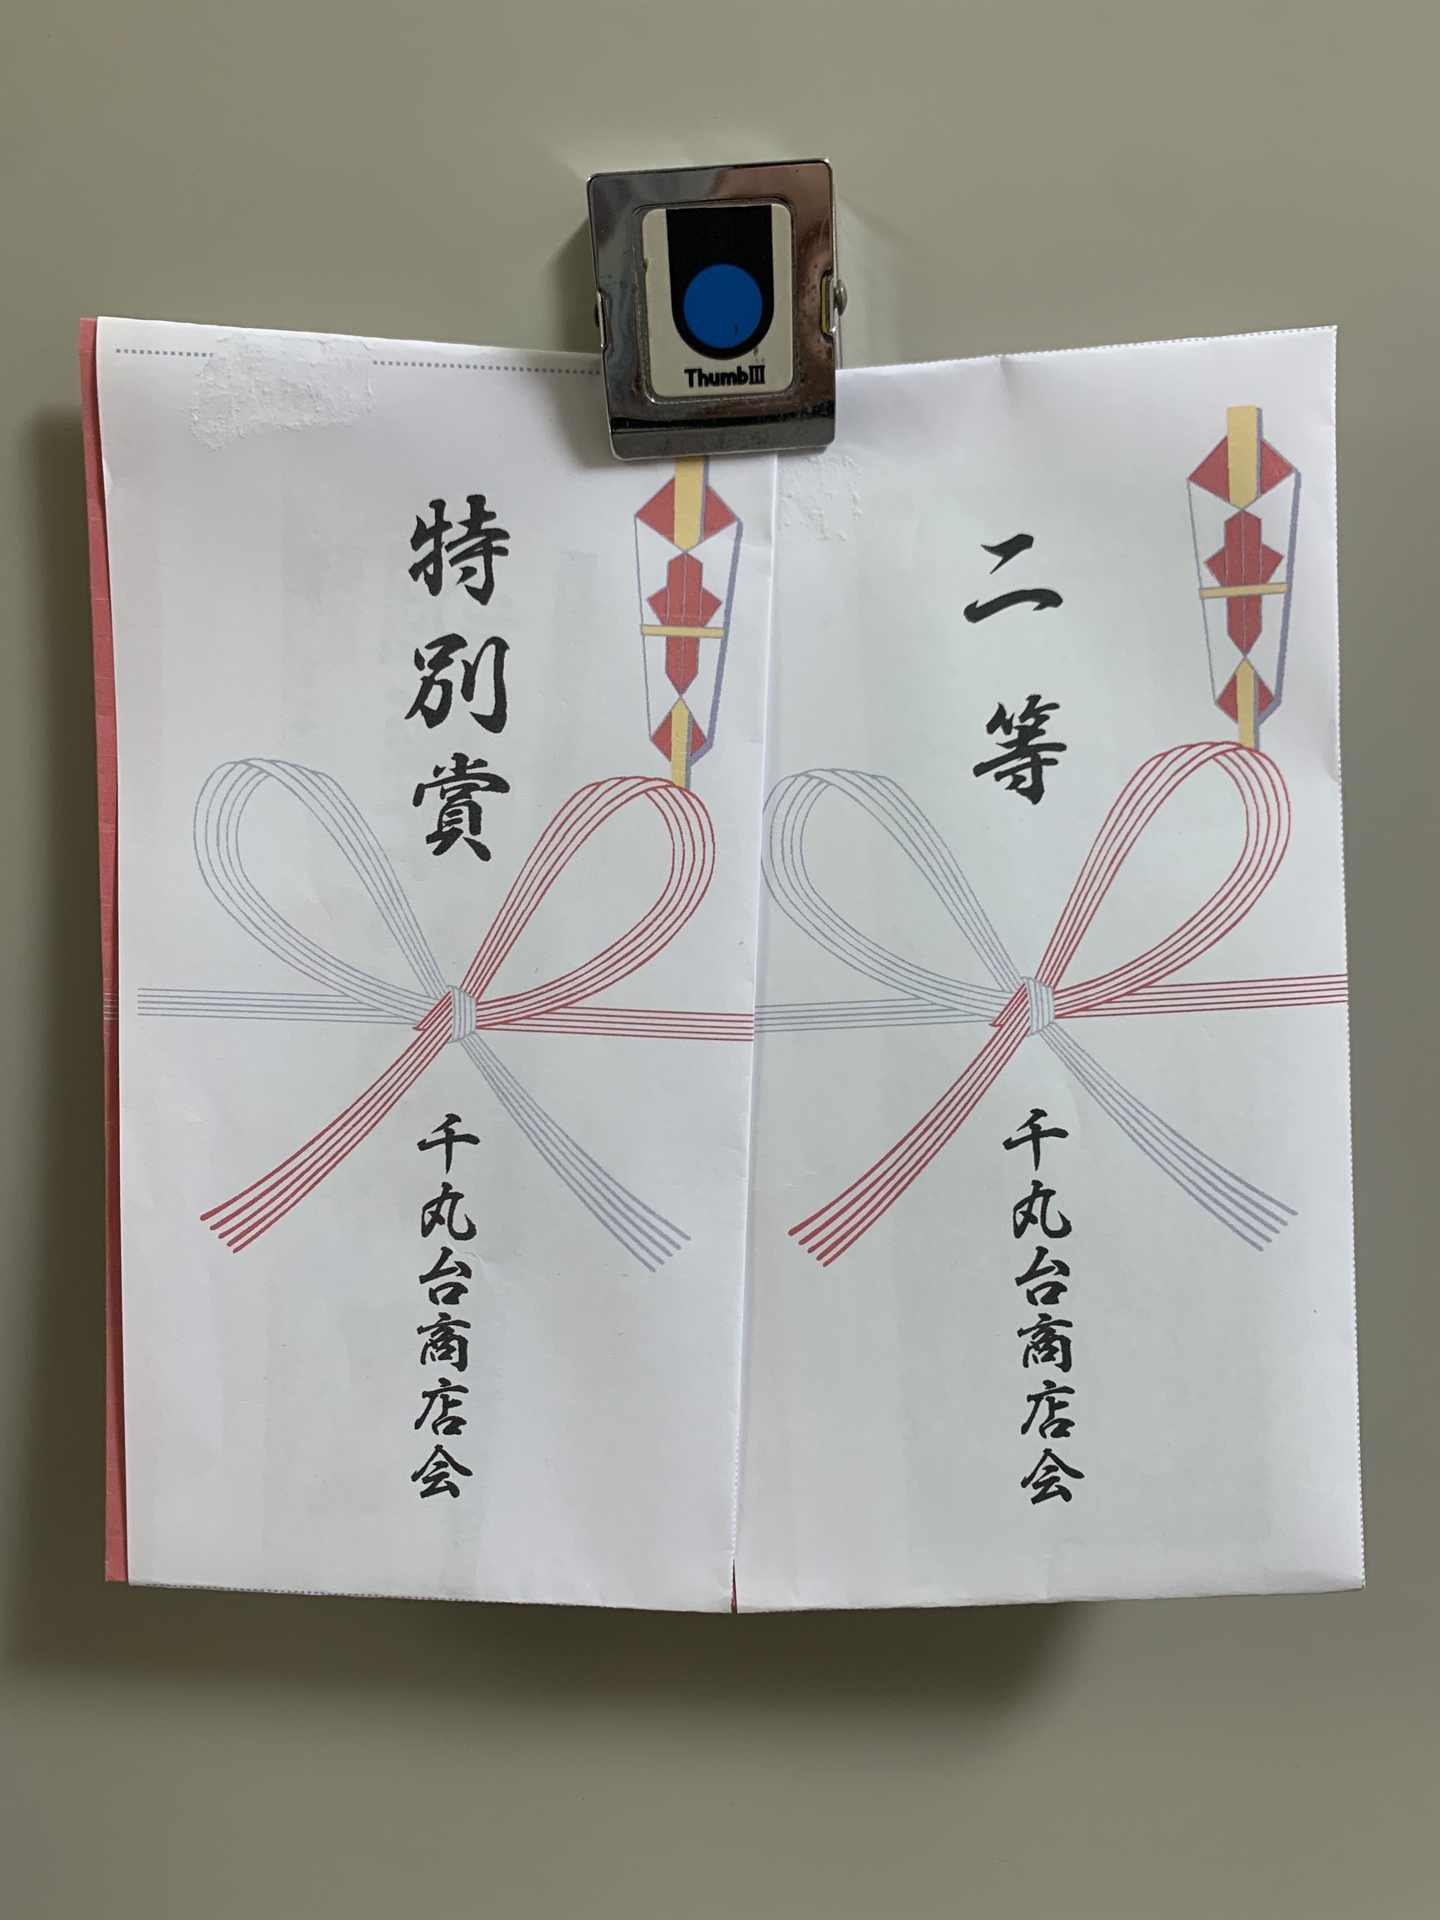 ThumbⅢ
特別賞
千丸台商店会
二等
千丸台商店会